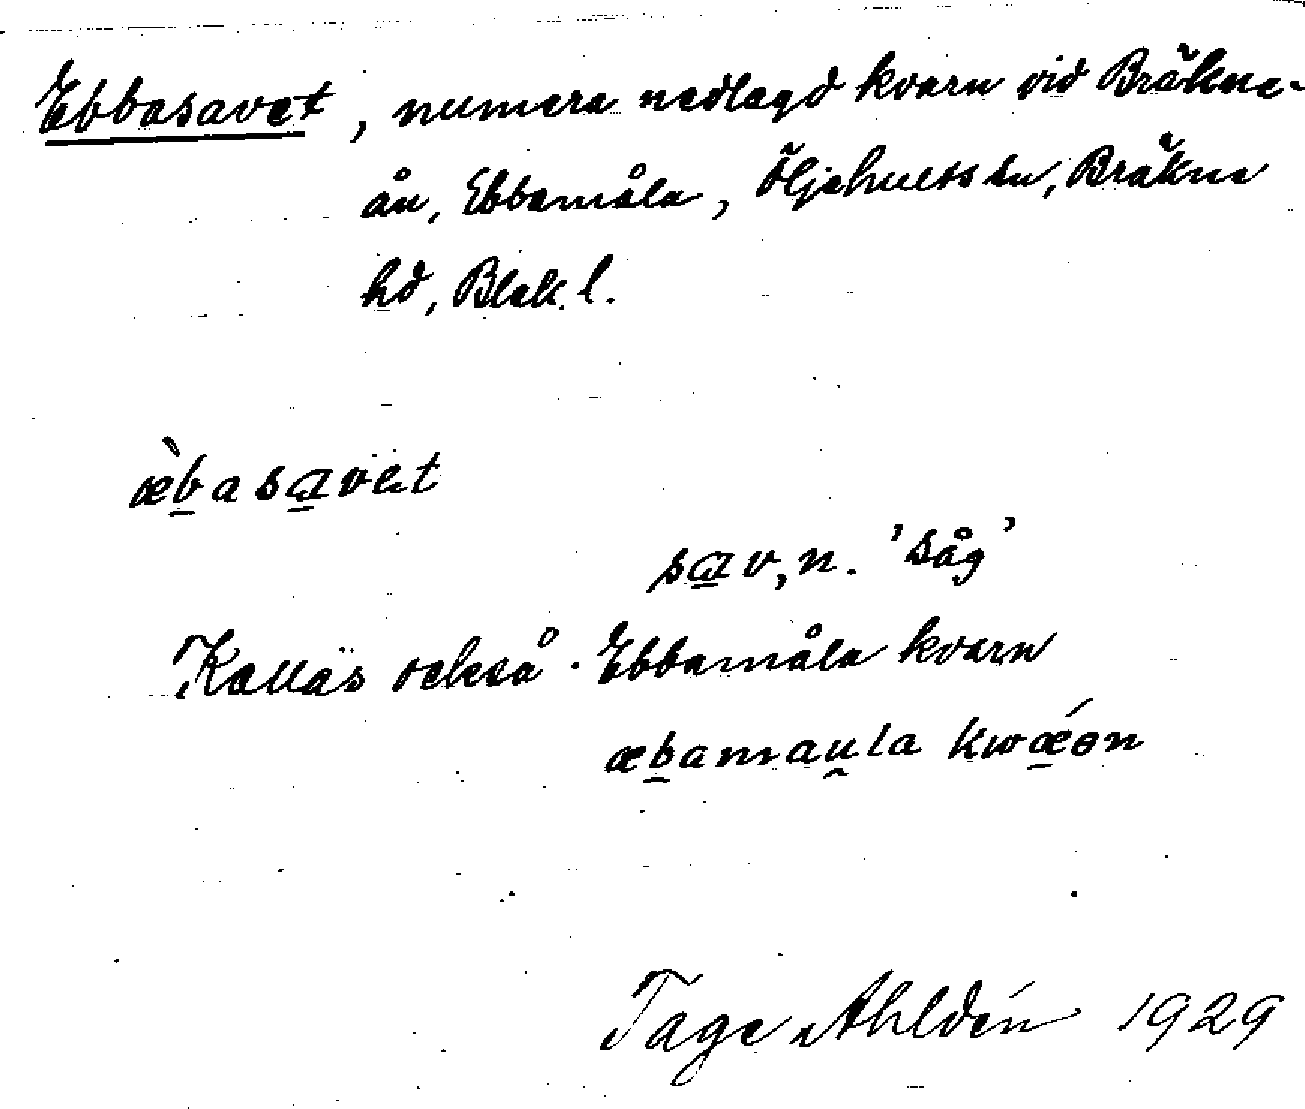 Ebbasavet, numera nedlagd kvarn vid Bräkne-
ån, Ebbamåla, Öljehults sn, Bräkne
hd, Blek. l.
æ̀b̲asa̲vet
sa̲v, n. 'såg'
Kallas också Ebbamåla kvarn
æb̲amau̯la kwǽ̲ɵn
Tage Ahldén 1929